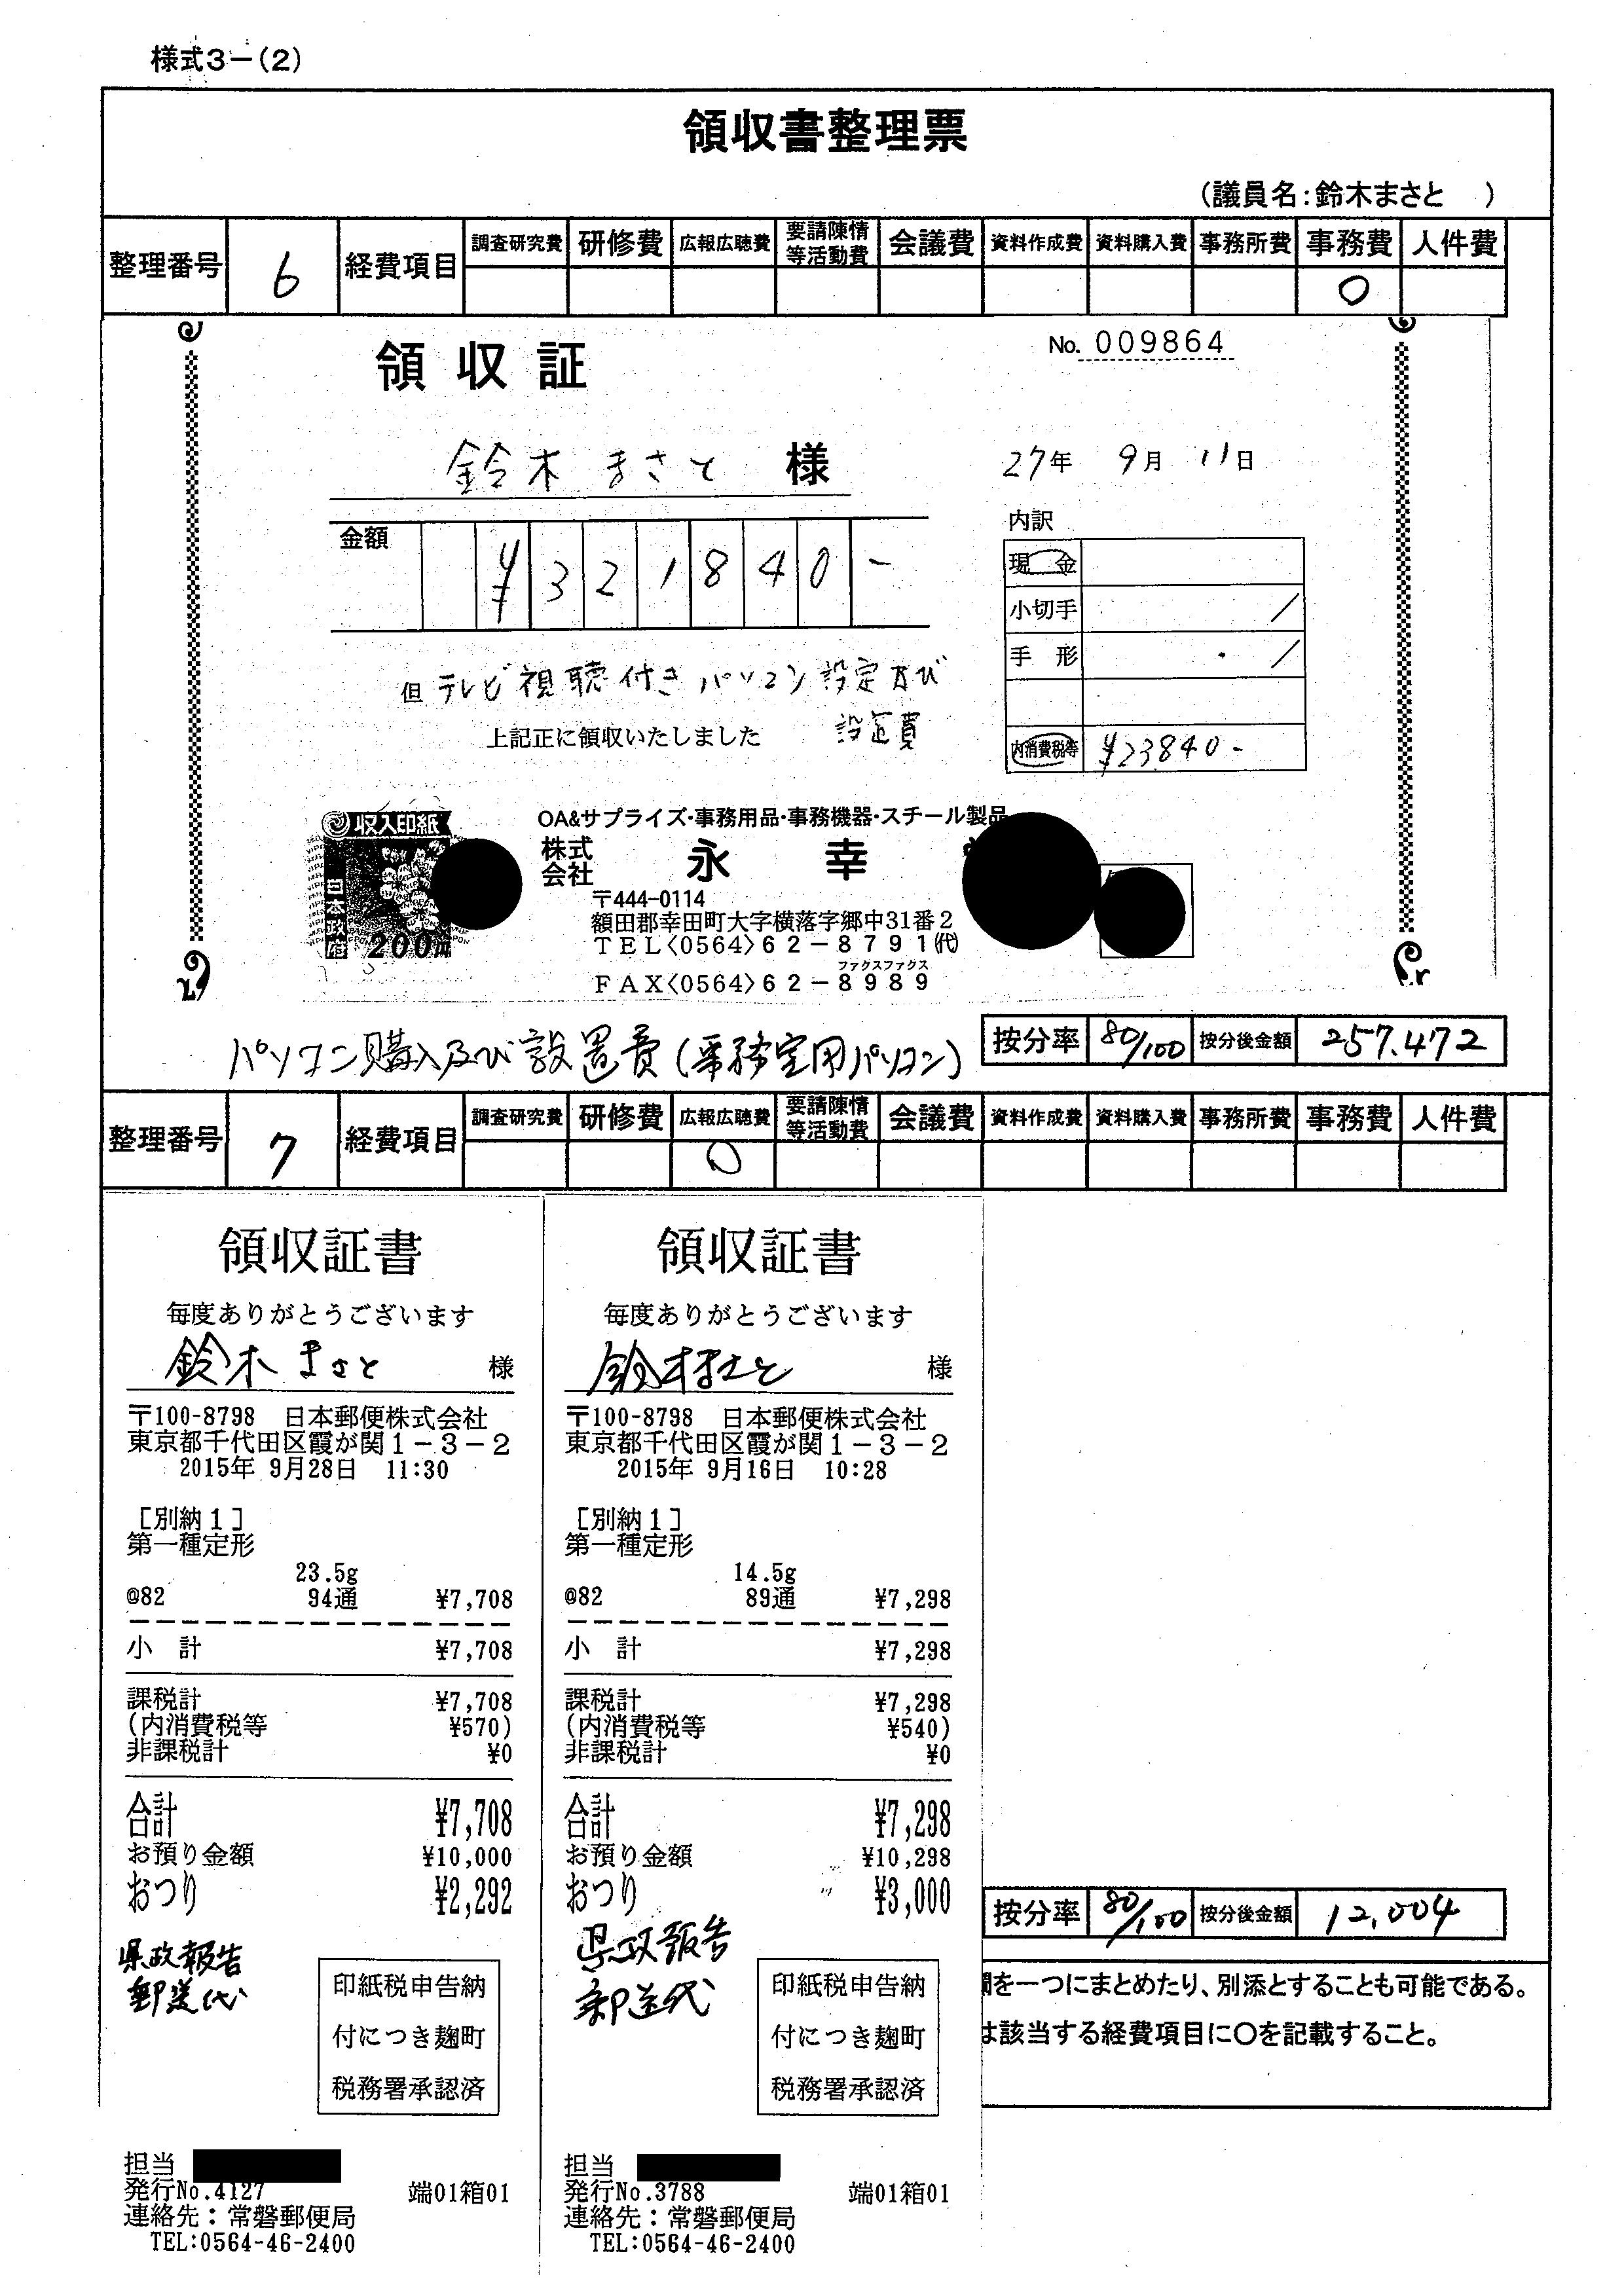 様式3-(2)
領収書整理票
(議員名:鈴木まさと )
整理番号 6 経費項目 調査研究費 研修費 広報広聴費 要請陳情等活動費 会議費 資料作成費 資料購入費 事務所費 事務費 人件費
○
領収証
No. 009864
鈴木 まさと 様
27年 9月 11日
金額 ¥321840-
内訳
現金
小切手
手形
内消費税等 ¥23840-
但 テレビ視聴付きパソコン設定及び
設置費
上記正に領収いたしました
収入印紙
日本政府
200円
OA&サプライズ・事務用品・事務機器・スチール製品
株式会社 永幸
〒444-0114
額田郡幸田町大字横落字郷中31番2
TEL〈0564〉62-8791(代)
ファクスファクス
FAX〈0564〉62-8989
パソコン購入及び設置費(事務室用パソコン)
按分率 80/100 按分後金額 257,472
整理番号 7 経費項目 調査研究費 研修費 広報広聴費 要請陳情等活動費 会議費 資料作成費 資料購入費 事務所費 事務費 人件費
○
領収証書
毎度ありがとうございます
鈴木まさと 様
〒100-8798 日本郵便株式会社
東京都千代田区霞が関1-3-2
2015年 9月28日 11:30
[別納1]
第一種定形
23.5g
@82 94通 ¥7,708
小計 ¥7,708
課税計 ¥7,708
(内消費税等 ¥570)
非課税計 ¥0
合計 ¥7,708
お預り金額 ¥10,000
おつり ¥2,292
県政報告
郵送代
印紙税申告納
付につき麹町
税務署承認済
担当
発行No.4127 端01箱01
連絡先:常磐郵便局
TEL:0564-46-2400
領収証書
毎度ありがとうございます
鈴木まさと 様
〒100-8798 日本郵便株式会社
東京都千代田区霞が関1-3-2
2015年 9月16日 10:28
[別納1]
第一種定形
14.5g
@82 89通 ¥7,298
小計 ¥7,298
課税計 ¥7,298
(内消費税等 ¥540)
非課税計 ¥0
合計 ¥7,298
お預り金額 ¥10,298
おつり ¥3,000
県政報告
郵送代
印紙税申告納
付につき麹町
税務署承認済
担当
発行No.3788 端01箱01
連絡先:常磐郵便局
TEL:0564-46-2400
按分率 80/100 按分後金額 12,004
欄を一つにまとめたり、別添とすることも可能である。
は該当する経費項目に○を記載すること。